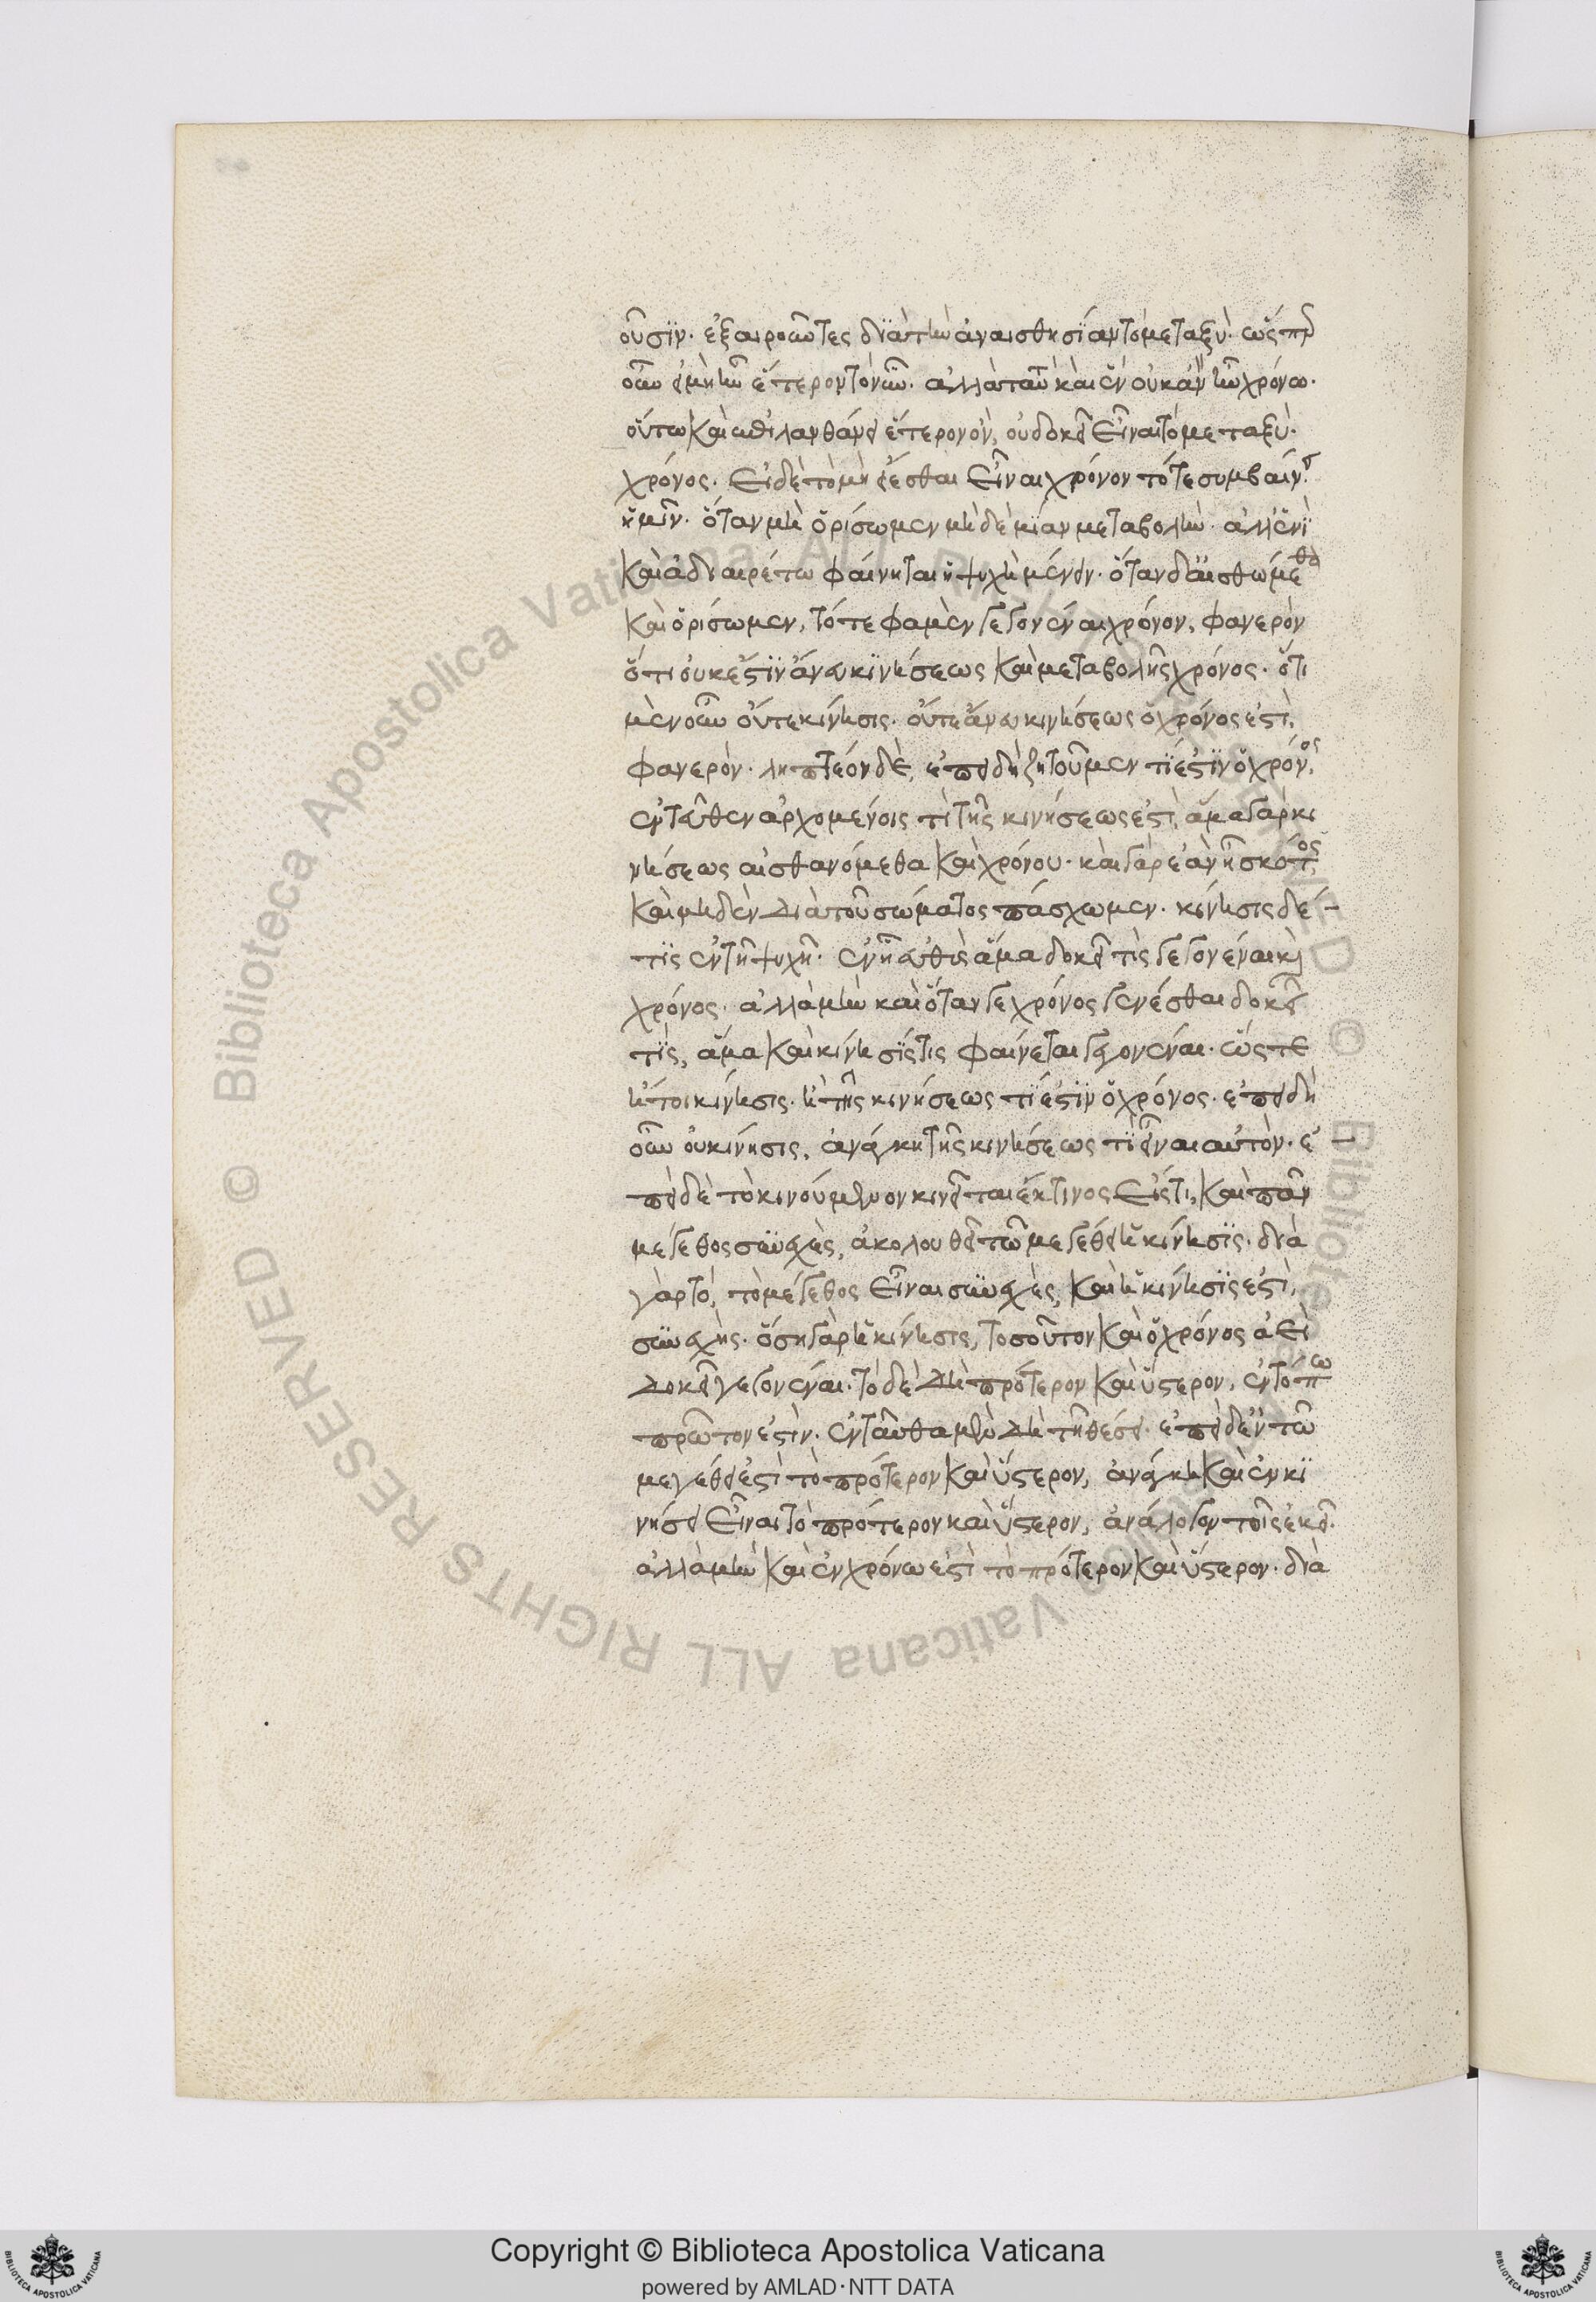 οῦσϊν· ἐξαιροῦντες δϊὰ τὴν ἀναισθησίαν τὸ μεταξύ· ὥσπερ
οὖν εἰ μὴ ἦν ἕτερον τὸ νῦν· ἀλλὰ ταυτὸ καὶ ἓν οὐκ ἂν ἦν χρόνω·
οὕτω καὶ ἐπεὶ λανθάνει ἕτερον ὂν, οὐ δοκεῖ εἶναι τὸ μεταξὺ·
χρόνος· εἰ δὲ τὸ μὴ οἴεσθαι εἶναι χρόνον τότε συμβαίνει
ἡμῖν· ὅταν μὴ ὁρίσωμεν μὴ δὲ μίαν μεταβολὴν· ἀλλ' ἐνῒ
καὶ ἀδιαιρέτω φαίνηται ἡ ψυχὴ μένειν· ὅταν δ' αἰσθώμεθα
καὶ ὁρίσωμεν, τότε φαμὲν γεγονέναι χρόνον, φανερὸν
ὅτι οὐκ ἔστϊν ἄνευ κϊνήσεως καὶ μεταβολῆς χρόνος· ὅτι
μὲν οὖν οὔτε κίνησις· οὔτε ἄνευ κινήσεως ὁ χρόνος ἐστὶ,
φανερὸν· ληπτέον δὲ, ἐπεὶ δὴ ζητοῦμεν τί ἐστϊν ὁ χρόνος,
ἐντεῦθεν ἀρχομένοις τὶ τῆς κινήσεως ἐστὶ, ἅμα γὰρ κι
νήσεως αἰσθανόμεθα καὶ χρόνου· καὶ γὰρ ἐὰν ἦ σκότος,
καὶ μηδὲν διὰ τοῦ σώματος πάσχωμεν· κίνησις δέ
τις ἐν τῆ ψυχῆ· ἐνῆ εὐθὺς ἅμα δοκεῖ τὶς γεγονέναι καὶ
χρόνος· ἀλλὰ μὴν καὶ ὅταν γε χρόνος γενέσθαι δοκεῖ
τϊς, ἅμα καὶ κίνησίς τις φαίνεται γεγονέναι· ὥστε
ἤτοι κίνησις· ἢ τῆς κινήσεως τί ἐστϊν ὁ χρόνος· ἐπεὶ δὴ
οὖν οὐ κίνησις, ἀνάγκη τῆς κινήσεως τϊ εἶναι αὐτὸν· ἐ
πεὶ δὲ τὸ κινούμενον κινεῖται ἔκ τινος εἴς τι, καὶ πᾶν
μέγεθος συνεχὲς, ἀκολουθεῖ τῶ μεγέθει ἡ κίνησϊς· διὰ
γὰρ τὸ, τὸ μέγεθος εἶναι συνεχὲς, καὶ ἡ κίνησϊς ἐστὶ,
συνεχὴς· ὅση γὰρ ἡ κίνησις, τοσοῦτον καὶ ὁ χρόνος ἀεὶ
δοκεῖ γεγονέναι· τὸ δὲ δὴ πρότερον καὶ ὕστερον, ἐν τόπω
πρῶτον ἐστὶν· ἐνταῦθα μὲν δὴ τῆ θέσει· ἐπεὶ δ' ἐν τῶ
μεγέθει ἐστὶ τὸ πρότερον καὶ ὕστερον, ἀνάγκη καὶ ἐν κϊ
νήσει εἶναι τὸ πρότερον καὶ ὕστερον, ἀνάλογον τοῖς ἐκεῖ·
ἀλλὰ μὴν καὶ ἐν χρόνω ἐστὶ τὸ πρότερον καὶ ὕστερον· διὰ
Copyright © Biblioteca Apostolica Vaticana
powered by AMLAD·NTT DATA